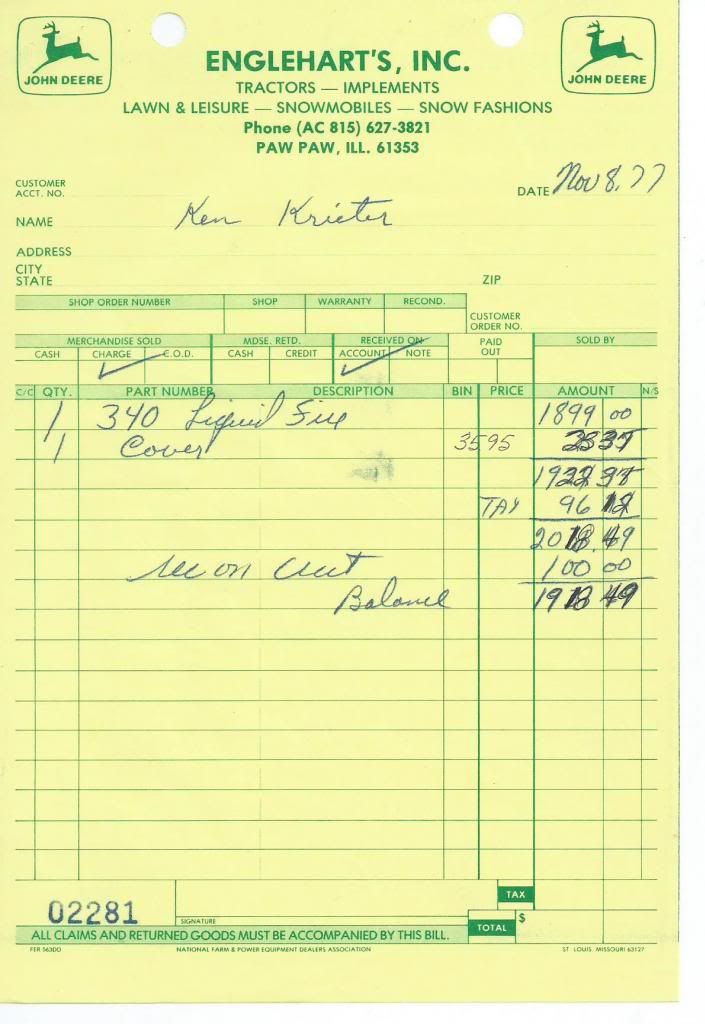 JOHN DEERE
JOHN DEERE
ENGLEHART'S, INC.
TRACTORS — IMPLEMENTS
LAWN & LEISURE — SNOWMOBILES — SNOW FASHIONS
Phone (AC 815) 627-3821
PAW PAW, ILL. 61353
CUSTOMER
ACCT. NO.
DATE Nov 8, 77
NAME Ken Krieter
ADDRESS
CITY
STATE
ZIP
SHOP ORDER NUMBER SHOP WARRANTY RECOND.
CUSTOMER
ORDER NO.
MERCHANDISE SOLD MDSE. RETD. RECEIVED ON PAID OUT SOLD BY
CASH CHARGE C.O.D. CASH CREDIT ACCOUNT NOTE
C/C QTY. PART NUMBER DESCRIPTION BIN PRICE AMOUNT N/S
1 340 Liquid Fire 1899 00
1 Cover 35.95
TAX 96
2018.49
on 100 00
Balance 1918 49
TAX
02281
SIGNATURE
TOTAL $
ALL CLAIMS AND RETURNED GOODS MUST BE ACCOMPANIED BY THIS BILL.
FER 563DD NATIONAL FARM & POWER EQUIPMENT DEALERS ASSOCIATION ST. LOUIS, MISSOURI 63127